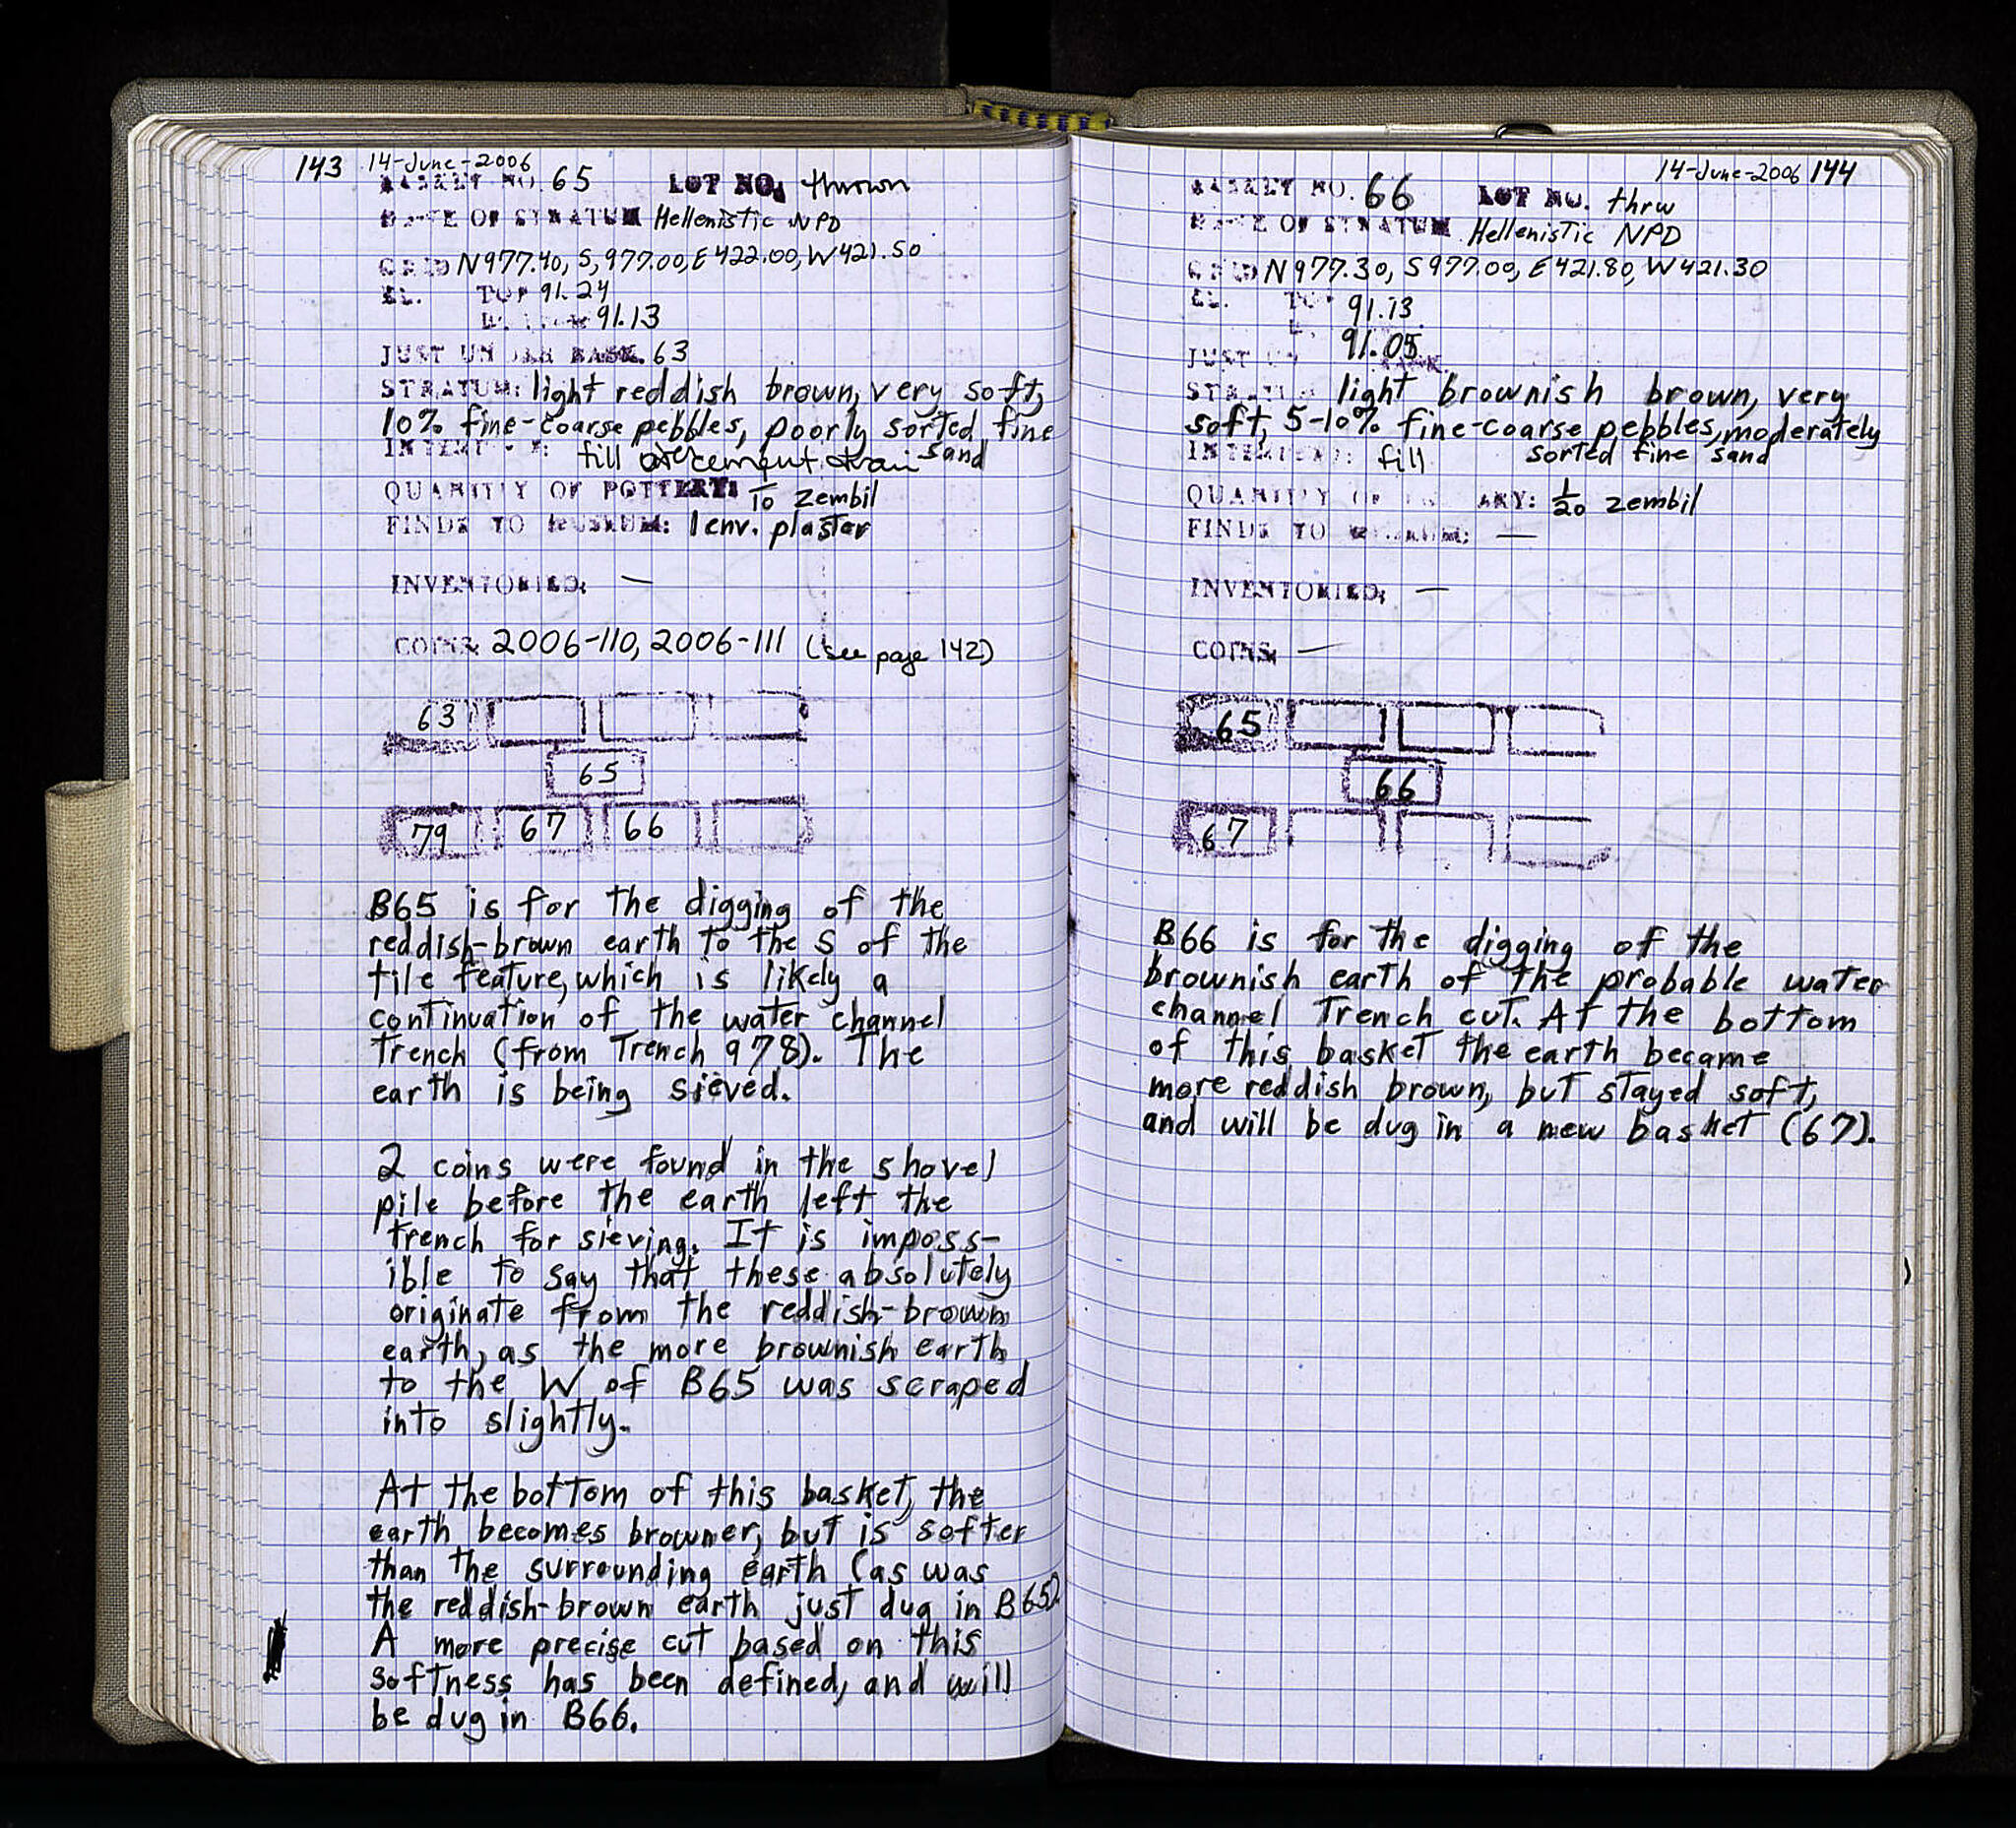 143 14-June-2006
BASKET NO. 65 LOT NO. thrown
DATE OF STRATUM Hellenistic NPD
GRID N977.40, S,977.00, E422.00, W421.50
EL. TOP 91.24
BOTTOM 91.13
JUST UNDER BASK. 63
STRATUM: light reddish brown, very soft,
10% fine-coarse pebbles, poorly sorted fine
sand
INTERPR: fill over cement drain
QUANTITY OF POTTERY: 1/10 zembil
FINDS TO MUSEUM: 1 env. plaster
INVENTORIED: —
COINS: 2006-110, 2006-111 (see page 142)
63
65
79 67 66
B65 is for the digging of the
reddish-brown earth to the S of the
tile feature, which is likely a
continuation of the water channel
Trench (from Trench 978). The
earth is being sieved.
2 coins were found in the shovel
pile before the earth left the
trench for sieving. It is imposs-
ible to say that these absolutely
originate from the reddish-brown
earth, as the more brownish earth
to the W of B65 was scraped
into slightly.
At the bottom of this basket, the
earth becomes browner, but is softer
than the surrounding earth (as was
the reddish-brown earth just dug in B65).
A more precise cut based on this
softness has been defined, and will
be dug in B66.
14-June-2006 144
BASKET NO. 66 LOT NO. thrw
DATE OF STRATUM Hellenistic NPD
GRID N977.30, S977.00, E421.80, W421.30
EL. TOP 91.13
91.05
JUST UNDER BASK.
STRATUM light brownish brown, very
soft, 5-10% fine-coarse pebbles, moderately
sorted fine sand
INTERPR: fill
QUANTITY OF POTTERY: 1/20 zembil
FINDS TO MUSEUM: —
INVENTORIED: —
COINS: —
65
66
67
B66 is for the digging of the
brownish earth of the probable water
channel Trench cut. At the bottom
of this basket the earth became
more reddish brown, but stayed soft,
and will be dug in a new basket (67).